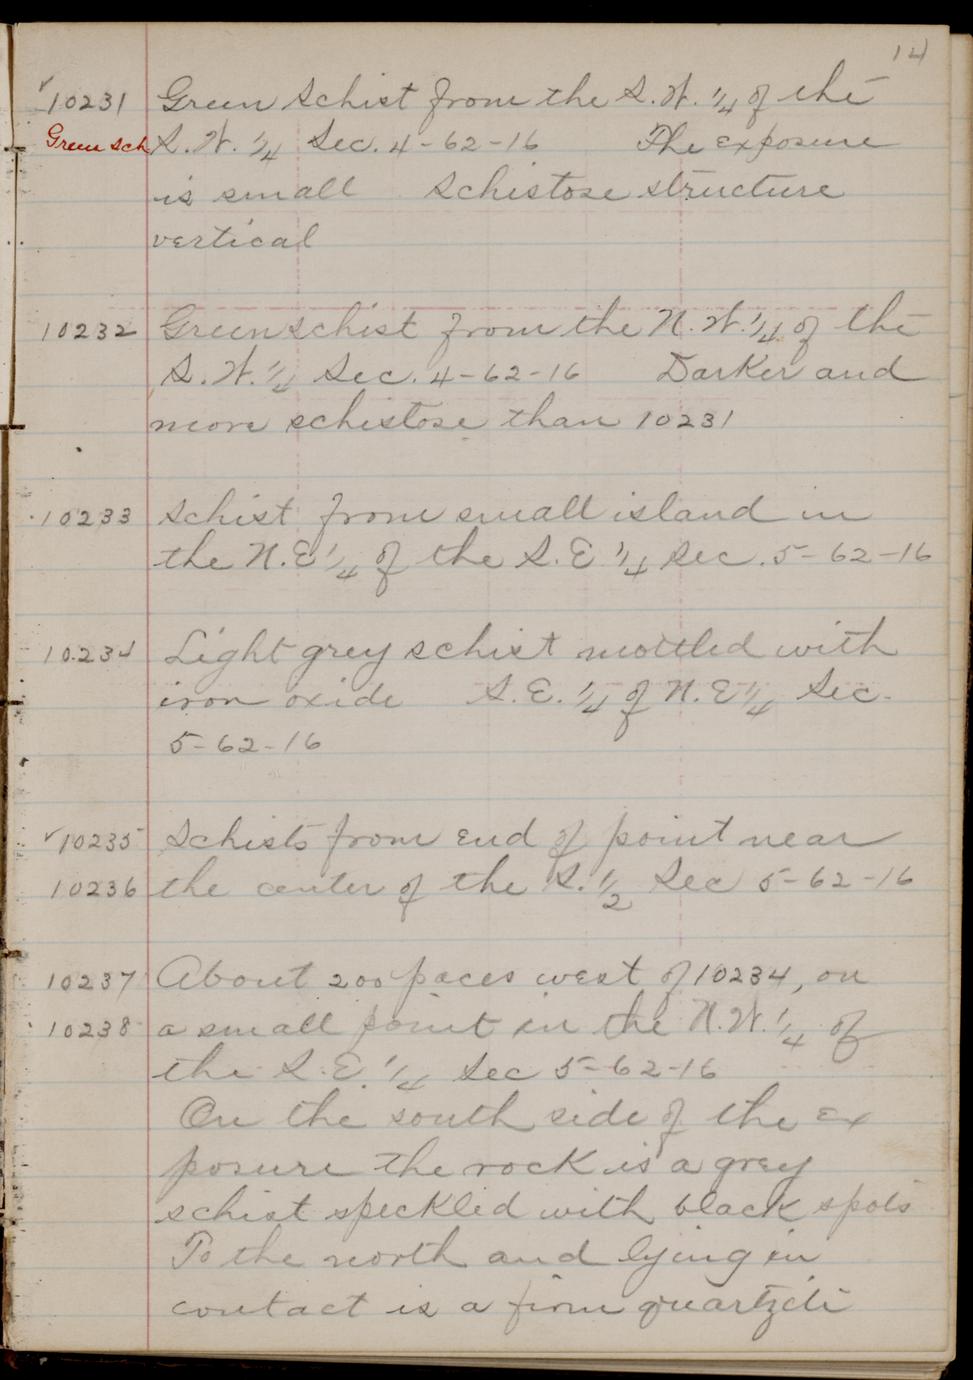 14
✓10231 Green Schist from the S.W. 1/4 of the
Green sch. S.W. 1/4 Sec. 4-62-16 The exposure
is small Schistose structure
vertical
10232 Greenschist from the N.W. 1/4 of the
S.W. 1/4 Sec. 4-62-16 Darker and
more schistose than 10231
10233 Schist from small island in
the N.E 1/4 of the S.E 1/4 Sec. 5-62-16
10234 Light grey schist mottled with
iron oxide S.E. 1/4 of N.E 1/4 Sec.
5-62-16
✓10235 Schists from end of point near
10236 the center of the S. 1/2 Sec 5-62-16
10237 About 200 paces west of 10234, on
10238 a small point in the N.W. 1/4 of
the S.E. 1/4 Sec 5-62-16
On the south side of the ex
posure the rock is a grey
schist speckled with black spots
To the north and lying in
contact is a firm quartzite